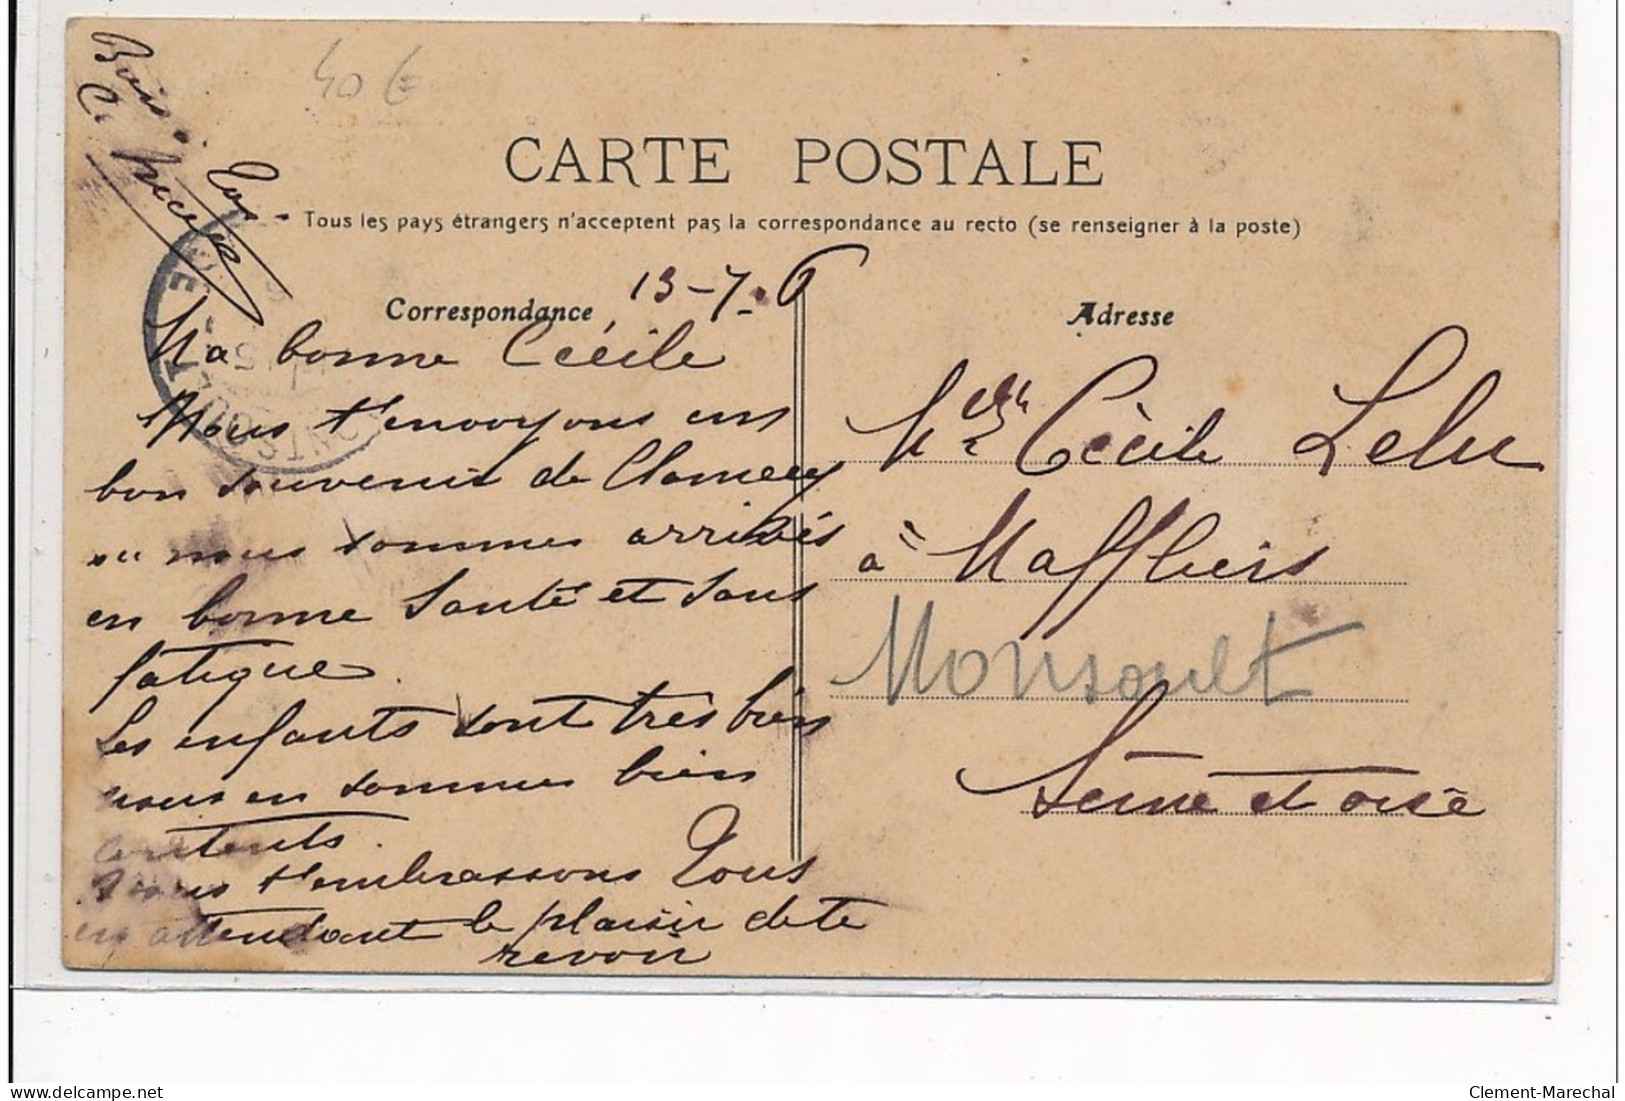 40 €
CARTE POSTALE
Tous les pays étrangers n'acceptent pas la correspondance au recto (se renseigner à la poste)
Correspondance
13-7-6
Ma bonne Cécile
Nous t'envoyons un
bon souvenir de Clamecy
ou nous sommes arrivés
en bonne Santé et Sans
fatigue.
Les enfants sont très bien
nous en sommes bien
contents.
Nous t'embrassons Tous
en attendant le plaisir de te
revoir
Adresse
Melle Cécile Lelu
à Maffliers
Monsoult
Seine et oise
Clement-Marechal